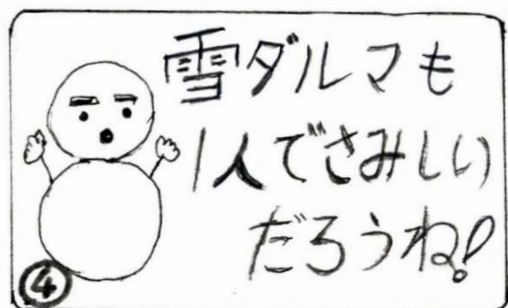 雪ダルマも
1人でさみしい
だろうね!
④